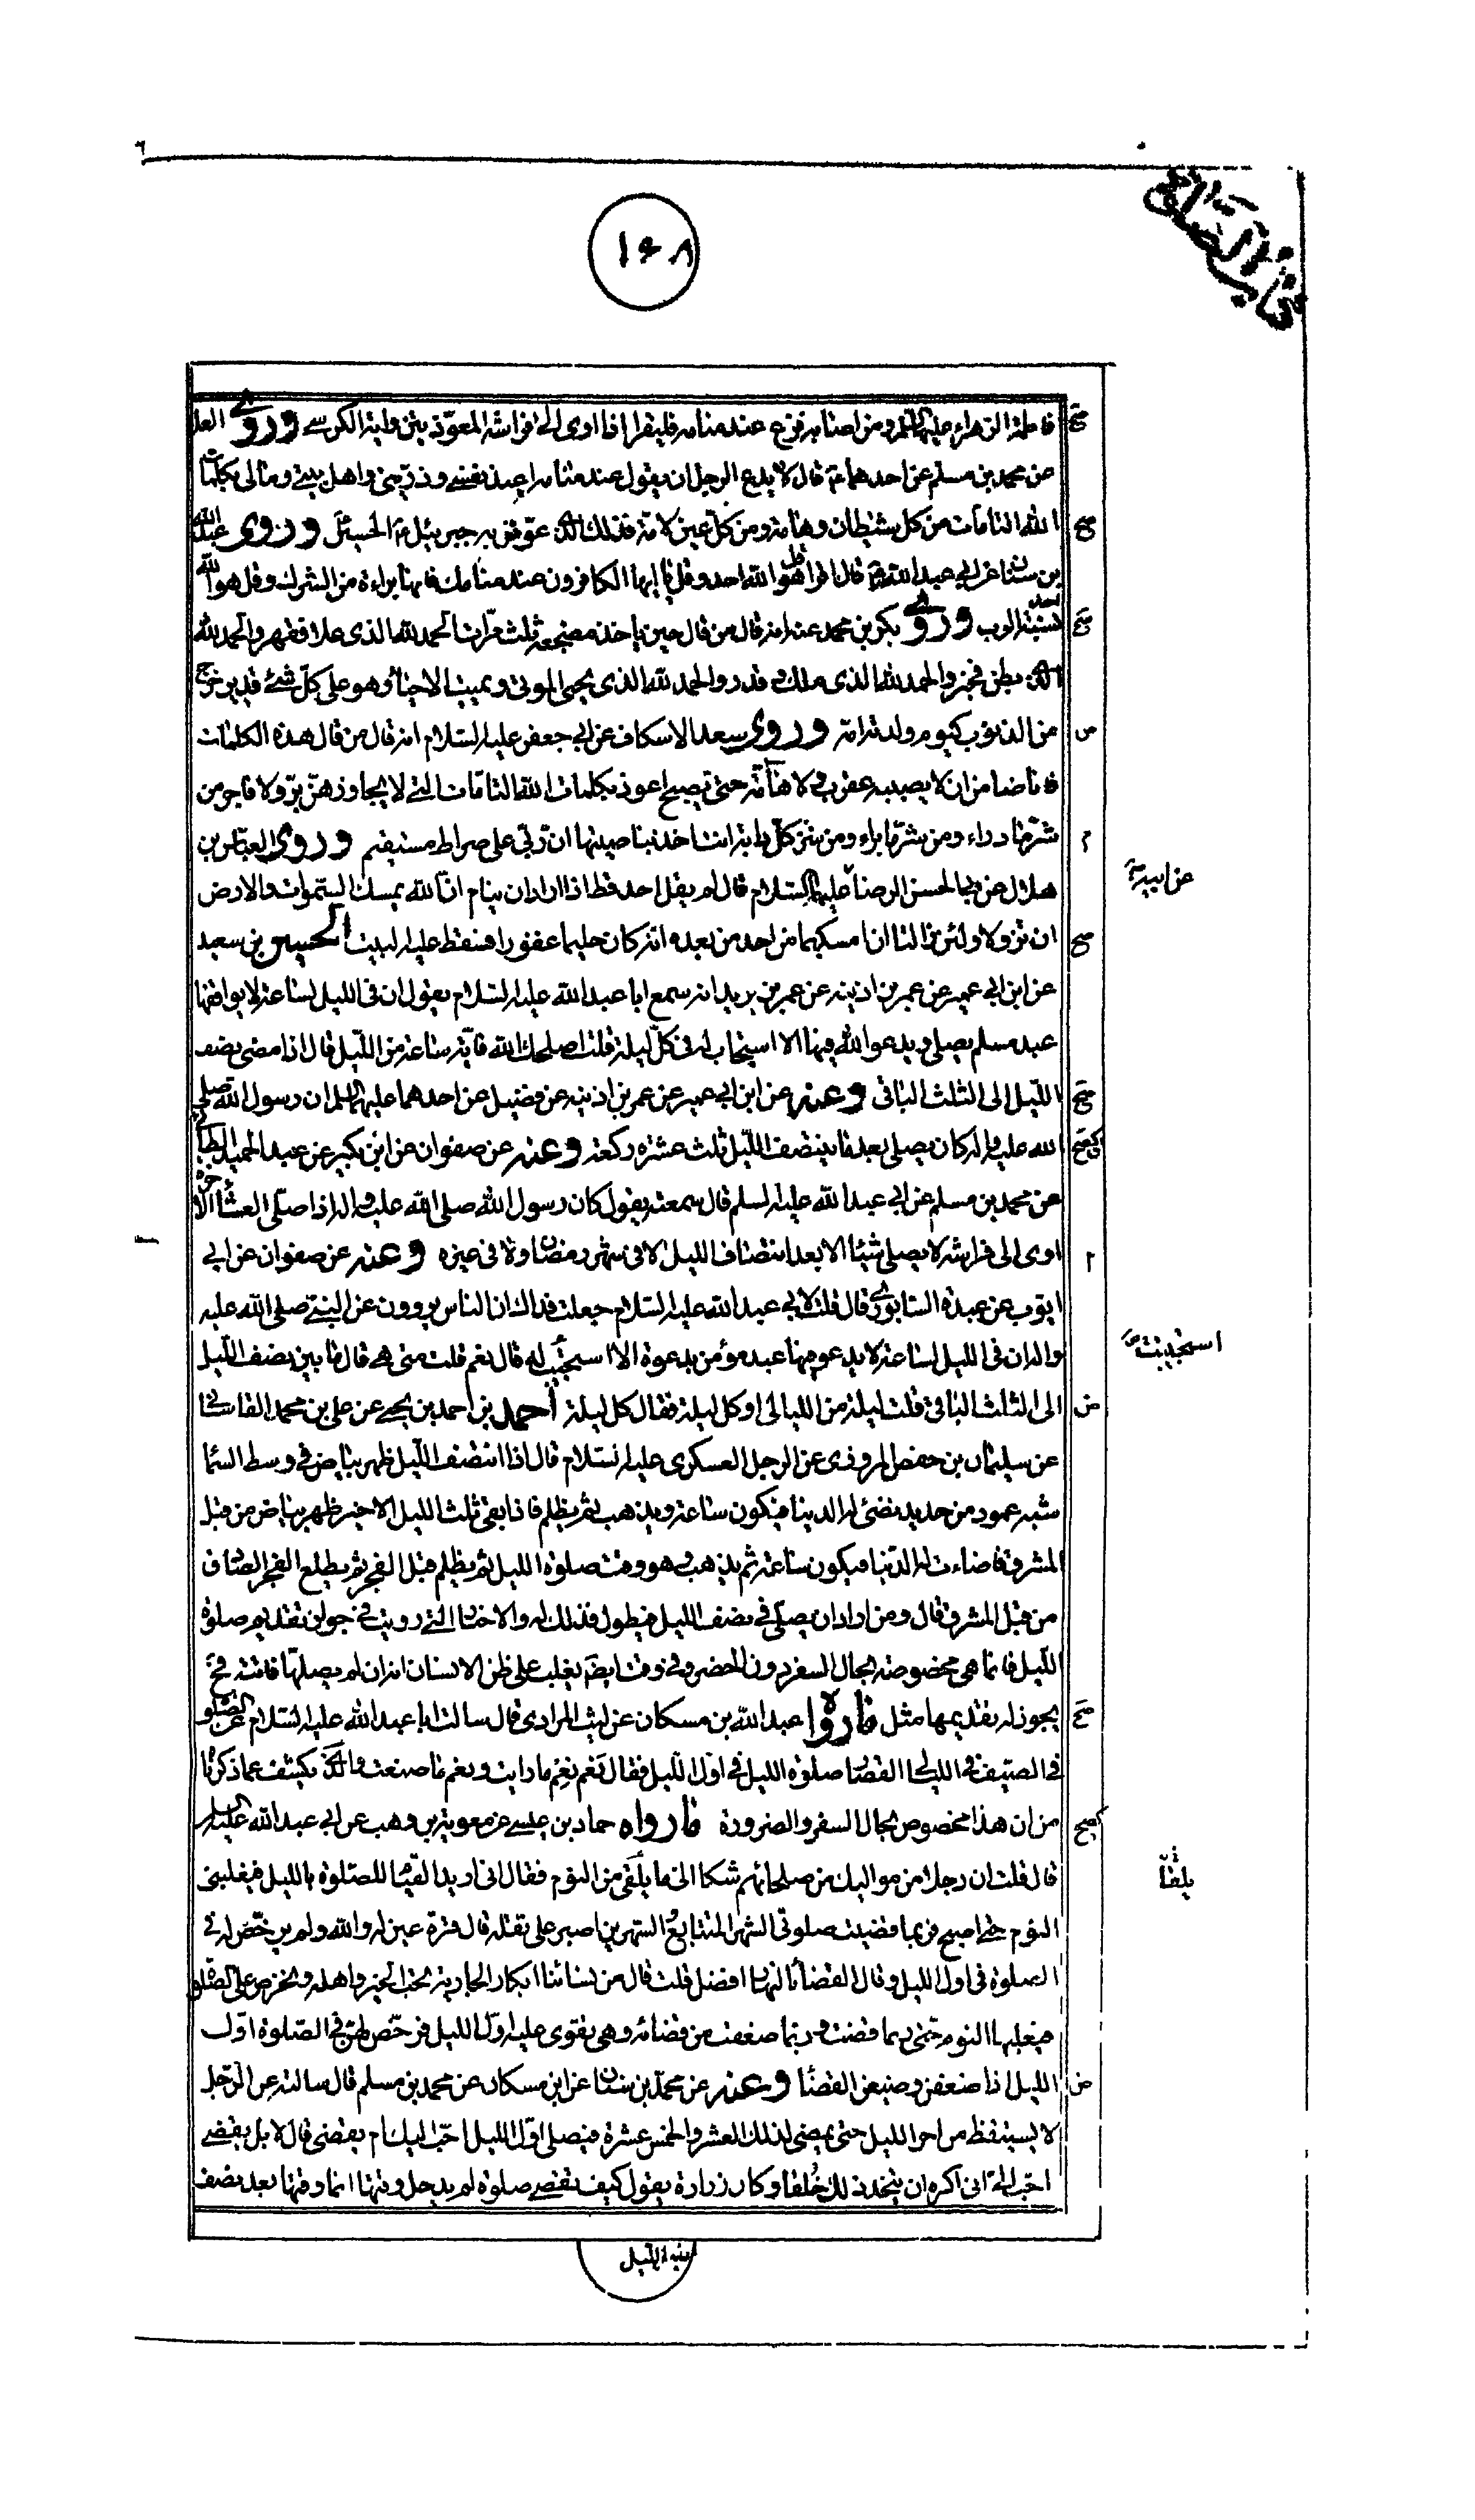 كتاب الصلوة
١٦٨
فاطمة الزهراء عليها السلم ومن اصابه فزع عند منامه فليقرا اذا اوى الى فراشه المعوذتين واية الكرسى وروى العلا
عن محمد بن مسلم عن احدهما ع قال لا يدع الرجل ان يقول عند منامه اعيذ نفسى وذريتى واهل بيتى ومالى بكلمات
الله التامات من كل شيطان وهامة ومن كل عين لامة فذلك الذى عوذ به جبرئيل ع الحسنين وروى عبد الله
بن سنان عن ابى عبد الله ع قال اقرا قل هو الله احد وقل يا ايها الكافرون عند منامك فانها براءة من الشرك وقل هو الله
احد نسبة الرب وروى بكر بن محمد عنه انه قال من قال حين ياخذ مضجعه ثلث مرات الحمد لله الذى علا فقهر والحمد لله
الذى بطن فخبر والحمد لله الذى ملك فقدر والحمد لله الذى يحيى الموتى ويميت الاحياء وهو على كل شئ قدير خرج
من الذنوب كيوم ولدته امه وروى سعد الاسكاف عن ابى جعفر عليه السلام انه قال من قال هذه الكلمات
فانا ضامن ان لا يصيبه عقرب ولا هامة حتى تصبح اعوذ بكلمات الله التامات التى لا يجاوزهن بر ولا فاجر من
شر ما ذراء ومن شر ما براء ومن شر كل دابة انت اخذ بناصيتها ان ربى على صراط مستقيم وروى العباس بن
هلال عن ابى الحسن الرضا عليهما السلام قال لم يقل احد قط اذا اراد ان ينام ان الله يمسك السموات والارض
عن ابيه
ان تزولا ولئن زالتا ان امسكهما من احد من بعده انه كان حليما غفورا فسقط عليه البيت الحسين بن سعيد
عن ابن ابى عمير عن عمر بن اذينه عن عمر بن يزيد انه سمع ابا عبد الله عليه السلام يقول ان فى الليل لساعة لا يوافقها
عبد مسلم يصلى ويدعو الله فيها الا استجاب له فى كل ليلة قلت اصلحك الله فاية ساعة من الليل قال اذا مضى نصف
الليل الى الثلث الباقى وعنه عن ابن ابى عمير عن عمر بن اذينه عن فضيل عن احدهما عليهما السلم ان رسول الله صلى
الله عليه واله كان يصلى بعد ما ينتصف الليل ثلث عشرة ركعة وعنه عن صفوان عن ابن بكير عن عبد الحميد الطائى
عن محمد بن مسلم عن ابى عبد الله عليه السلم قال سمعته يقول كان رسول الله صلى الله عليه واله اذا صلى العشاء الاخرة
اوى الى فراشه لا يصلى شيئا الا بعد انتصاف الليل لا فى شهر رمضان ولا فى غيره وعنه عن صفوان عن ابى
ايوب عن عبدة السابورى قال قلت لابى عبد الله عليه السلام جعلت فداك ان الناس يروون عن النبى صلى الله عليه
واله ان فى الليل لساعة لا يدعو فيها عبد مؤمن بدعوة الا استجيب له قال نعم قلت متى هى قال ما بين نصف الليل
استجيبت
الى الثلث الباقى قلت ليلة من الليالى او كل ليلة فقال كل ليلة احمد بن احمد بن يحيى عن على بن محمد القاسانى
عن سليمان بن حفص المروزى عن الرجل العسكرى عليه السلام قال اذا انتصف الليل ظهر بياض فى وسط السما
شبه عمود من حديد تضئ له الدنيا فيكون ساعة ويذهب ثم يظلم فاذا بقى ثلث الليل الاخير ظهر بياض من قبل
المشرق فاضاءت له الدنيا فيكون ساعة ثم يذهب وهو وقت صلوة الليل ثم يظلم قبل الفجر ثم يطلع الفجر الصادق
من قبل المشرق قال ومن اراد ان يصلى فى نصف الليل فيطول فذلك له والاخبار التى رويت فى جواز تقديم صلوة
الليل فانما هى مخصوصة بحال السفر دون الحضر وفى وقت ايضا يغلب على ظن الانسان انه ان لم يصلها فاتته فح
يجوز له تقديمها مثل ما رواه عبد الله بن مسكان عن ليث المرادى قال سالت ابا عبد الله عليه السلام عن الصلوة
فى الصيف فى الليالى القصار صلوة الليل فى اول الليل فقال نعم نعم ما رايت ونعم ما صنعت والذى يكشف عما ذكرنا
من ان هذا مخصوص بحال السفر والضرورة ما رواه حماد بن عيسى عن معوية بن وهب عن ابى عبد الله عليه السلم
قال قلت ان رجلا من مواليك من صلحائهم شكا الى ما يلقى من النوم فقال انى اريد القيام للصلوة بالليل فيغلبنى
يلقا
النوم حتى اصبح فربما قضيت صلوتى الشهر المتتابع والشهرين اصبر على ثقله قال قرة عين له والله ولم يرخص له فى
الصلوة فى اول الليل وقال القضاء بالنهار افضل قلت قال من نسائنا ابكار الجارية تحب الخير واهله وتحرص على الصلوة
فيغلبها النوم حتى ربما قضت وربما ضعفت عن قضائه وهى تقوى عليه اول الليل فرخص لهن فى الصلوة اول
الليل اذا ضعفن وضيعن القضاء وعنه عن محمد بن سنان عن ابن مسكان عن محمد بن مسلم قال سالته عن الرجل
لا يستيقظ من اخر الليل حتى يمضى لذلك العشر والخمس عشرة فيصلى اول الليل احب اليك ام يقضى قال لا بل يقضى
احب الى انى اكره ان يتخذ ذلك خلقا وكان زرارة يقول كيف تقضى صلوة لم يدخل وقتها انما وقتها بعد نصف